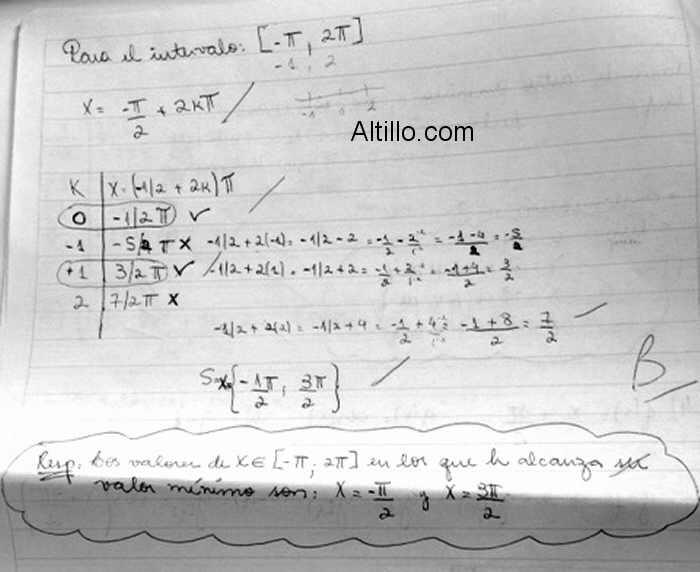 Para el intervalo: [-π, 2π]
-1, 2
X = -π/2 + 2kπ
-1 0 2
Altillo.com
K | X = (-1/2 + 2k)π
0 | -1/2 π ✓
-1 | -5/2 π X -1/2 + 2(-1) = -1/2 - 2 = -1/2 - 2/1 = (-1-4)/2 = -5/2
+1 | 3/2 π ✓ -1/2 + 2(1) = -1/2 + 2 = -1/2 + 2/1 = (-1+4)/2 = 3/2
2 | 7/2 π X
-1/2 + 2(2) = -1/2 + 4 = -1/2 + 4/1 = (-1+8)/2 = 7/2
{-1π/2 ; 3π/2}
B
Resp: Los valores de X ∈ [-π; 2π] en los que h alcanza su
valor mínimo son: X = -π/2 y X = 3π/2.